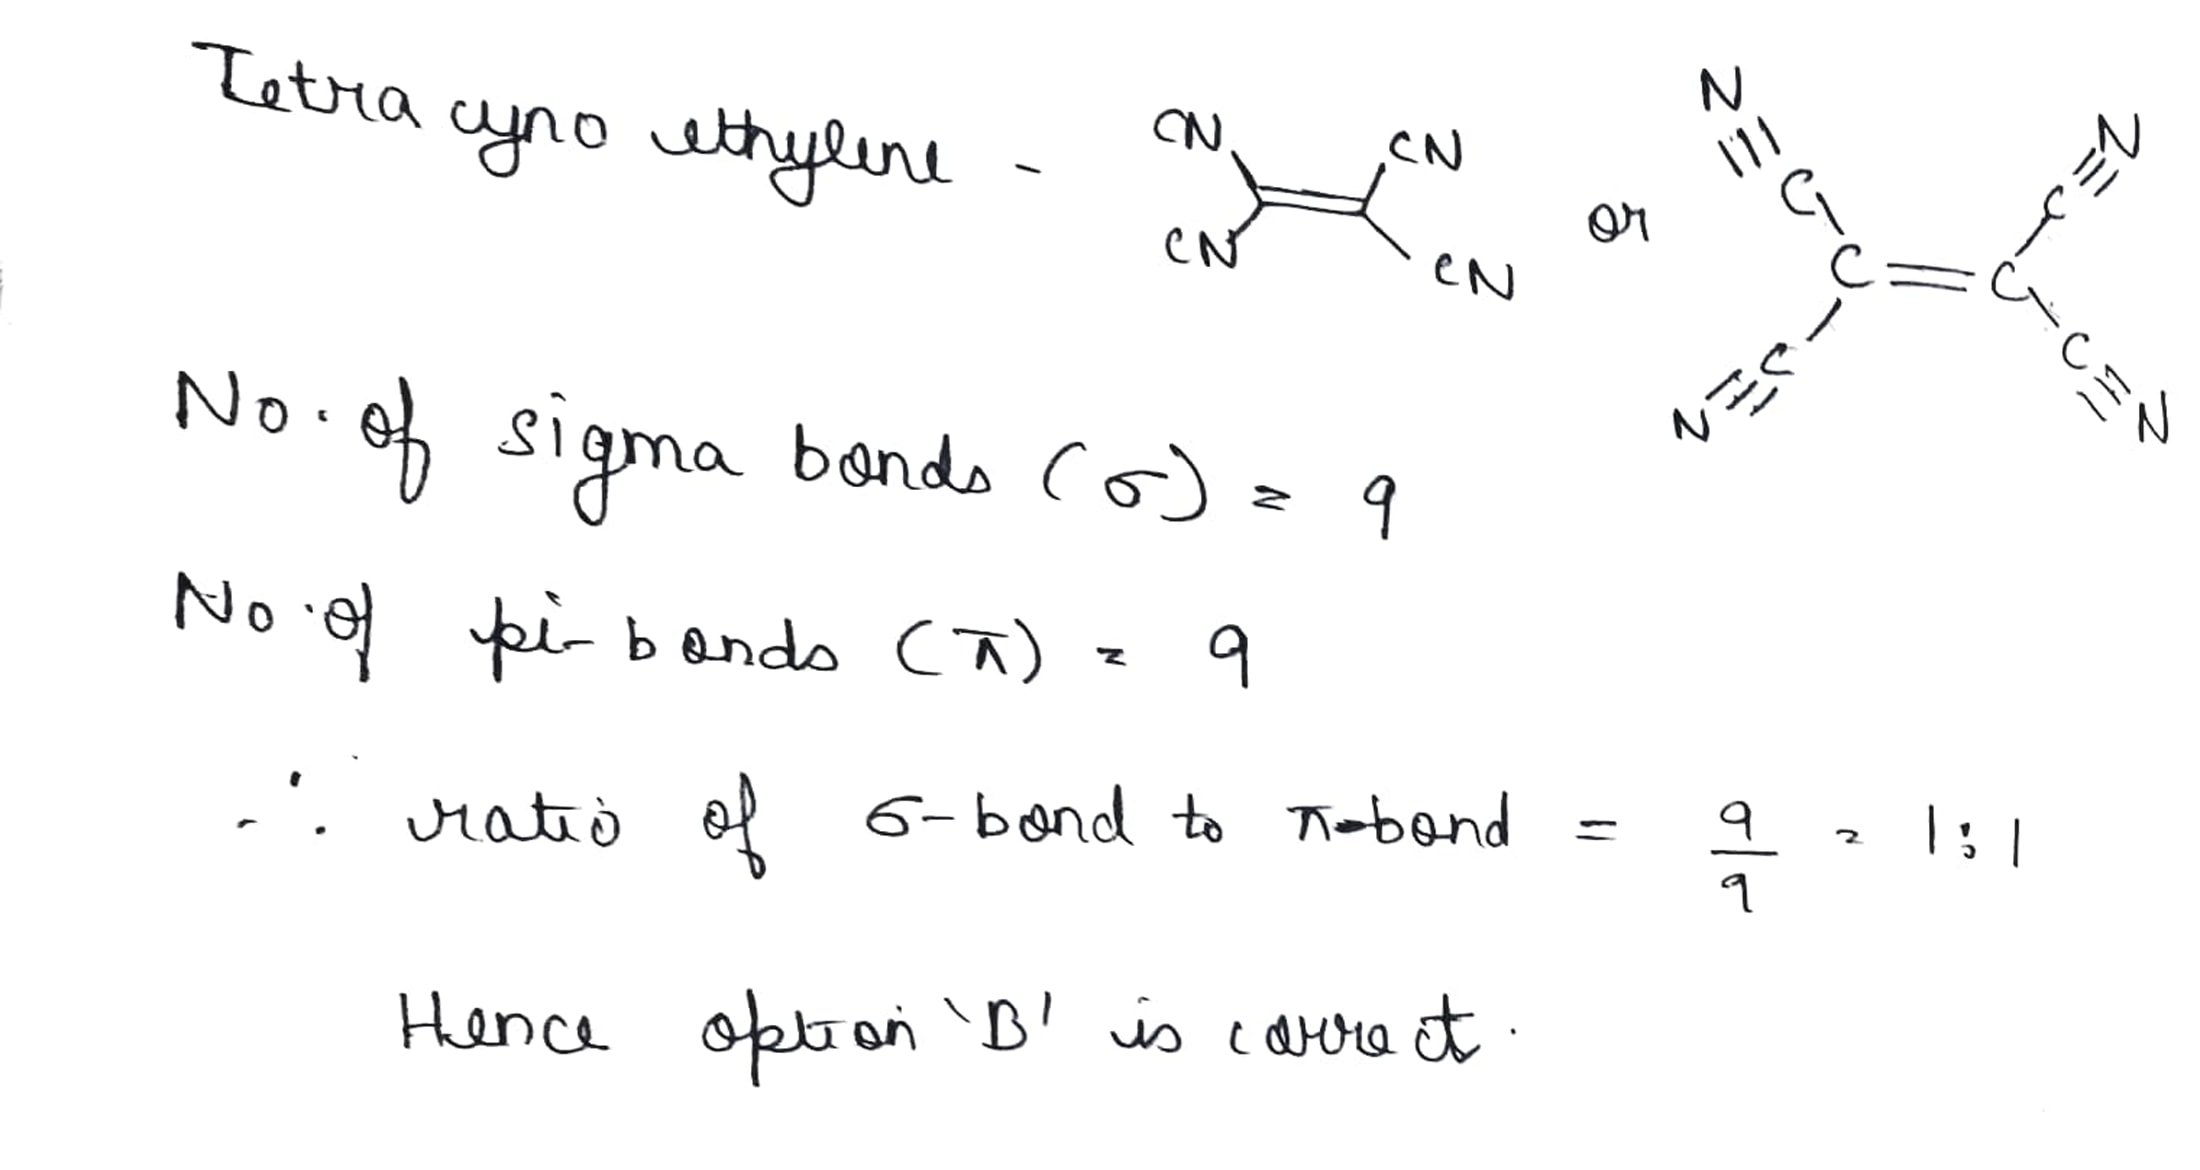 Tetra cyno ethylene - CN CN CN CN or N≡C N≡C C=C C≡N C≡N
No. of sigma bonds (σ) = 9
No. of pi-bonds (π) = 9
∴ ratio of σ-bond to π-bond = 9/9 = 1:1
Hence option 'B' is correct.